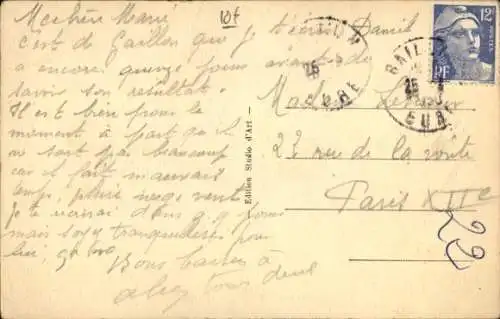 Ma chère Marie
c'est de Gaillon que je t'écris Daniel
a encore quinze jours avant de
savoir son résultat.
Il est bien pour le
moment à part qu'il
ne sort pas beaucoup
car il fait mauvais
temps, pluie neige vent
je te verrai dans q q jours
mais soyez tranquilles pour
lui, ça va
Bons baisers à
chez tous deux
10f
Edition Studio d'Art
Madame
22 rue de la voûte
Paris XIIe
22
GAILLON
26
EURE
12F
RF